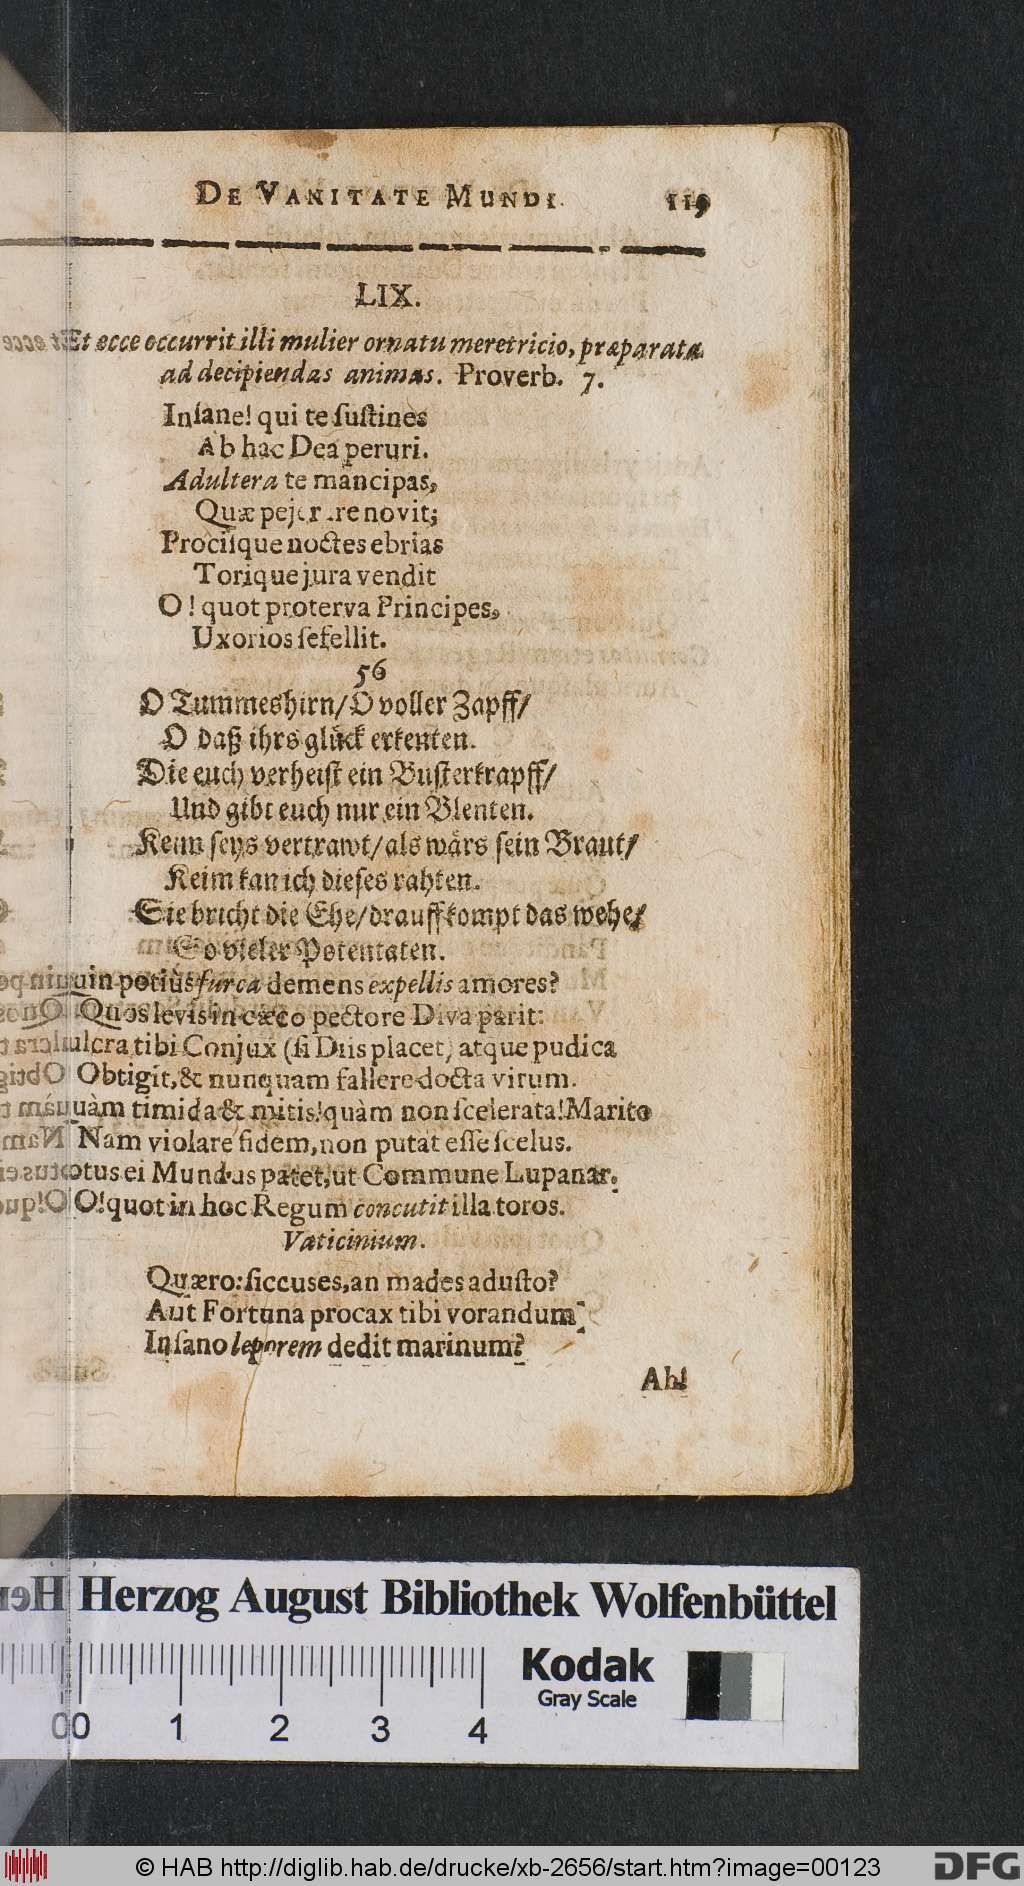 DE VANITATE MUNDI. 119
LIX.
Et ecce occurrit illi mulier ornatu meretricio, præparata
ad decipiendas animas. Proverb. 7.
Inſane! qui te ſuſtines
Ab hac Dea peruri.
Adultera te mancipas,
Quæ pejerare novit;
Prociſque noctes ebrias
Torique jura vendit
O! quot proterva Principes,
Uxorios fefellit.
56
O Tummeshirn/ O voller Zapff/
O daß ihrs glück erkenten.
Die euch verheiſt ein Buſterkrapff/
Und gibt euch nur ein Blenten.
Keim ſeys vertrawt/ als wårs ſein Braut/
Keim kan ich dieſes rahten.
Sie bricht die Ehe/ drauff kompt das wehe/
So vieler Potentaten.
uin potiùs furca demens expellis amores?
Quos levis in cæco pectore Diva parit:
ulcra tibi Conjux (ſi Diis placet) atque pudica
Obtigit, & nunquam fallere docta virum.
uàm timida & mitis! quàm non ſcelerata! Marito
Nam violare fidem, non putat eſſe ſcelus.
otus ei Mundus patet, ut Commune Lupanar.
O! quot in hoc Regum concutit illa toros.
Vaticinium.
Quæro: ſiccuses, an mades aduſto?
Aut Fortuna procax tibi vorandum
Inſano leporem dedit marinum?
Ah!
Herzog August Bibliothek Wolfenbüttel
Kodak
Gray Scale
0 1 2 3 4
© HAB http://diglib.hab.de/drucke/xb-2656/start.htm?image=00123
DFG